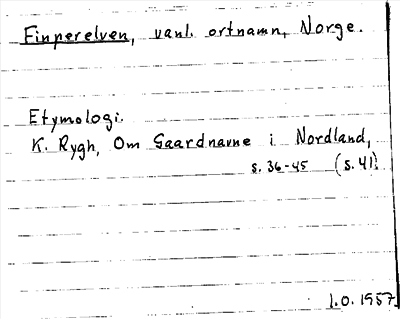 Finperelven, vanl. ortnamn, Norge.
Etymologi.
K. Rygh, Om Gaardnavne i Nordland,
s. 36-45 (s. 41)
I.O. 1957